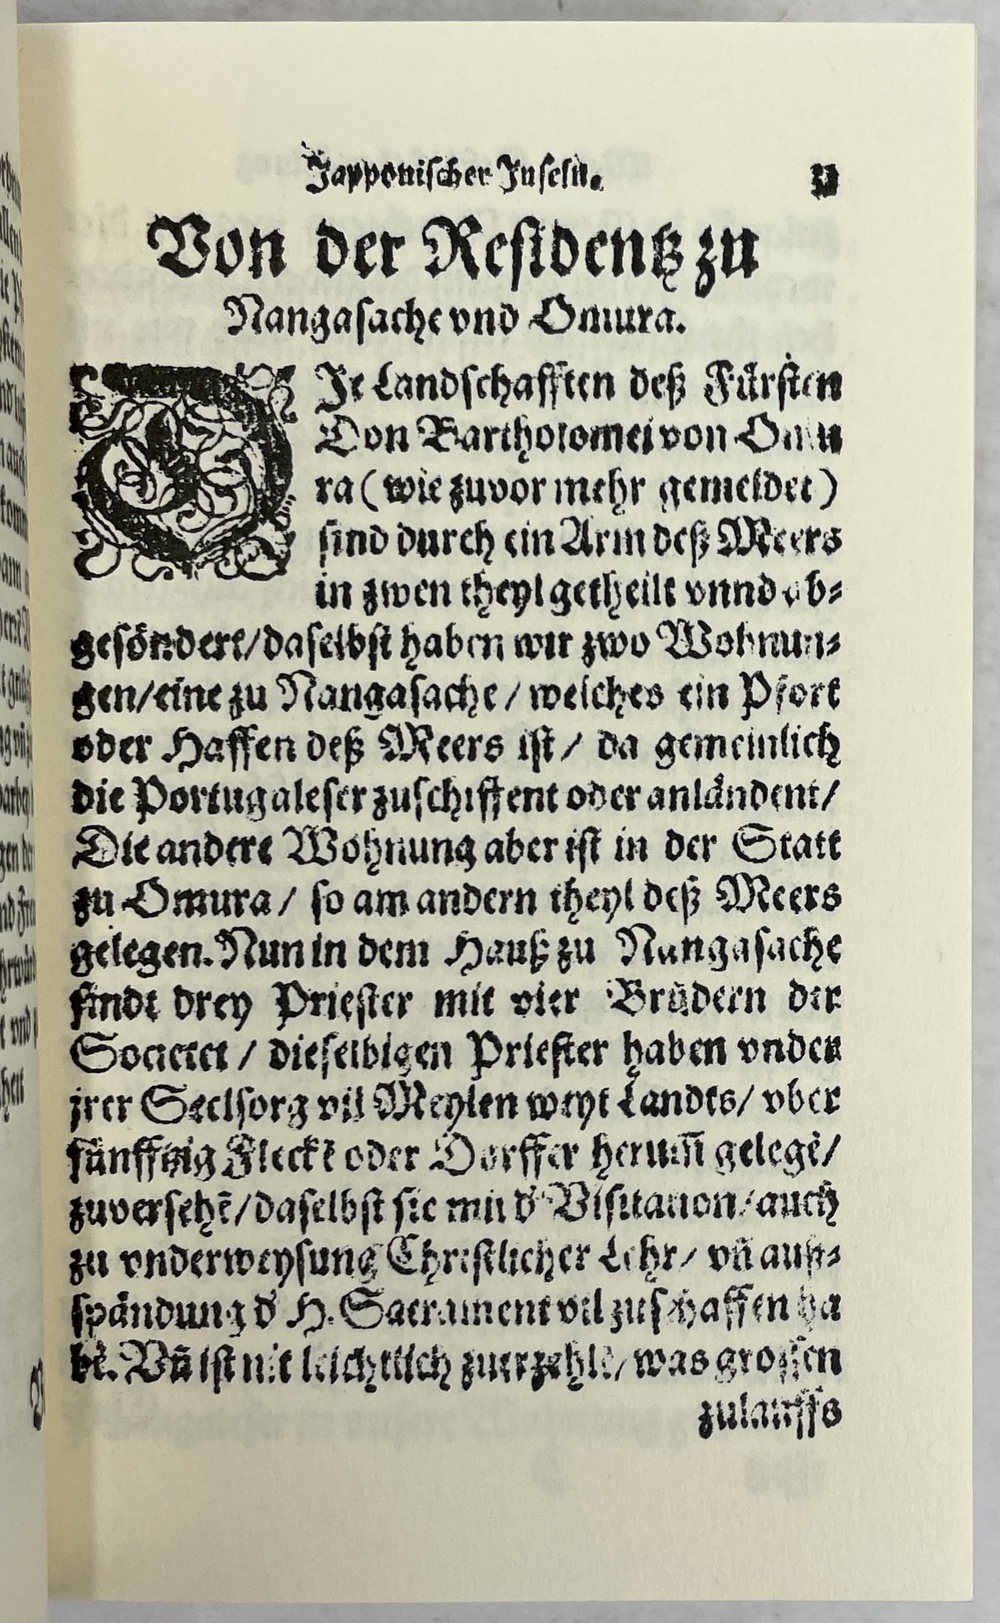 Japponischer Inseln.
Von der Residentz zu
Nangasache vnd Omura.
DJe Landschafften deß Fürsten
Don Bartholomei von Omu
ra (wie zuvor mehr gemeldet)
sind durch ein Arm deß Meers
in zwen theyl getheilt vnnd ab-
gesöndert/daselbst haben wir zwo Wohnun-
gen/eine zu Nangasache/ welches ein Pfort
oder Haffen deß Meers ist/ da gemeinlich
die Portugaleser zuschiffent oder anländent/
Die andere Wohnung aber ist in der Statt
zu Omura/ so am andern theyl deß Meers
gelegen. Nun in dem Hauß zu Nangasache
sindt drey Priester mit vier Brüdern der
Societet/ dieselbigen Priester haben vnder
jrer Seelsorg vil Meylen weyt Landts/ vber
fünfftzig Fleckē oder Dörffer herum̄ gelegē/
zuversehē/daselbst sie mit d' Visitation/auch
zu vnderweysung Christlicher Lehr/ vn̄ auß-
spändung d' H. Sacrament vil zuschaffen ha
bē. Vn̄ ist nit leichtlich zuerzehlē/ was grossen
zulauffs